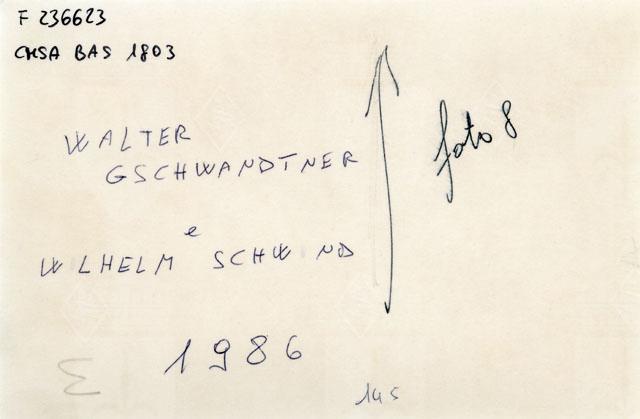 F 236623
CMSA BAS 1803
WALTER
GSCHWANDTNER
e
WILHELM SCHWIND
1986
foto 8
145